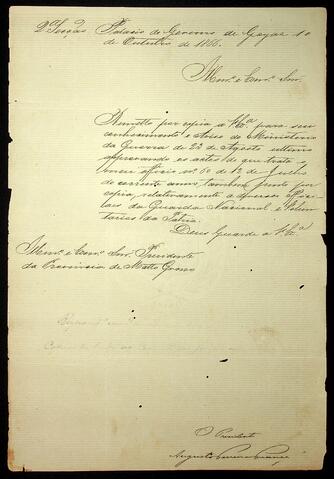 2ª Secção Palacio do Governo de Goyaz 10
de Outubro de 1866.
Illmº e Exmº Snr.
Remetto por copia a V. Exª para seu
conhecimento o Aviso do Ministerio
da Guerra de 22 de Agosto ultimo
approvando os actos de que trata o
meu officio nº 60 de 12 de Julho
do corrente anno tambem junto por
copia, relativamente a diversos
da Guarda Nacional e Volun-
tarios da Patria.
Deus Guarde a V. Exª
Illmº e Exmº Snr. Presidente
da Provincia de Matto Grosso
O Presidente
Augusto Ferreira França